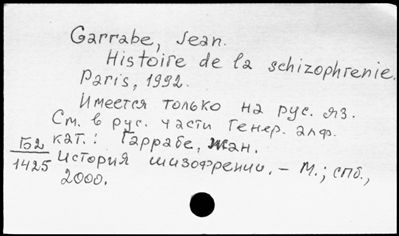 Garrabe, Jean.
Histoire de la schizophrenie.
Paris, 1992.
Имеется только на рус. яз.
См. в рус. части Генер. алф.
кат.: Гаррабе, Жан.
История шизофрении. – М.; СПб.,
2000.
Б2
1425